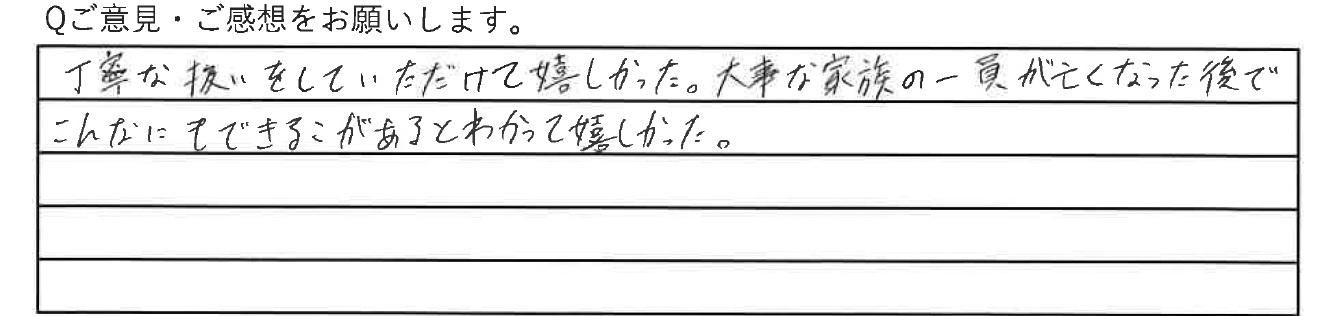 Qご意見・ご感想をお願いします。
丁寧な扱いをしていただけて嬉しかった。大事な家族の一員が亡くなった後で
こんなにもできるこがあるとわかって嬉しかった。